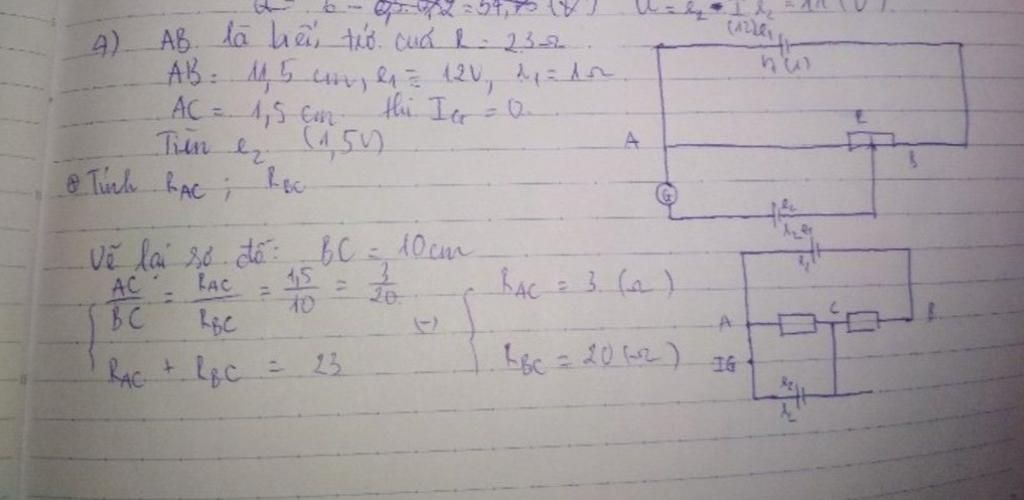 = 54,75 (V) U = e₂ - I r₂ = 11 (V)
4) AB là biến trở của R = 23Ω
AB = 11,5 cm, e₁ = 12V, r₁ = 1Ω
AC = 1,5 cm thì I_G = 0.
Tiền e₂ (1,5V)
Tính R_AC ; R_BC
Vẽ lại sơ đồ: BC = 10cm
AC/BC = R_AC/R_BC = 1,5/10 = 3/20
R_AC + R_BC = 23
(-)
R_AC = 3 (Ω)
R_BC = 20 (Ω)
(12) e₁
r₁ (1)
R
A
B
G
e₂
r₂
e₁
r₁
A
C
B
IG
e₂
r₂